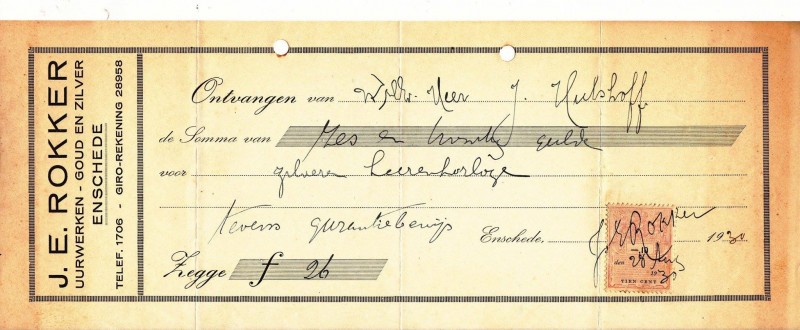 J. E. ROKKER
UURWERKEN - GOUD EN ZILVER
ENSCHEDE
TELEF. 1706 - GIRO-REKENING 28958
Ontvangen van WelEd. Heer J. Hulshoff
de Somma van Zes en twintig gulde
voor zilveren heerenhorloge
tevens garantiebewijs
Enschede, 1930
J E Rokker
den 28 Aug
1930
TIEN CENT
Zegge f 26